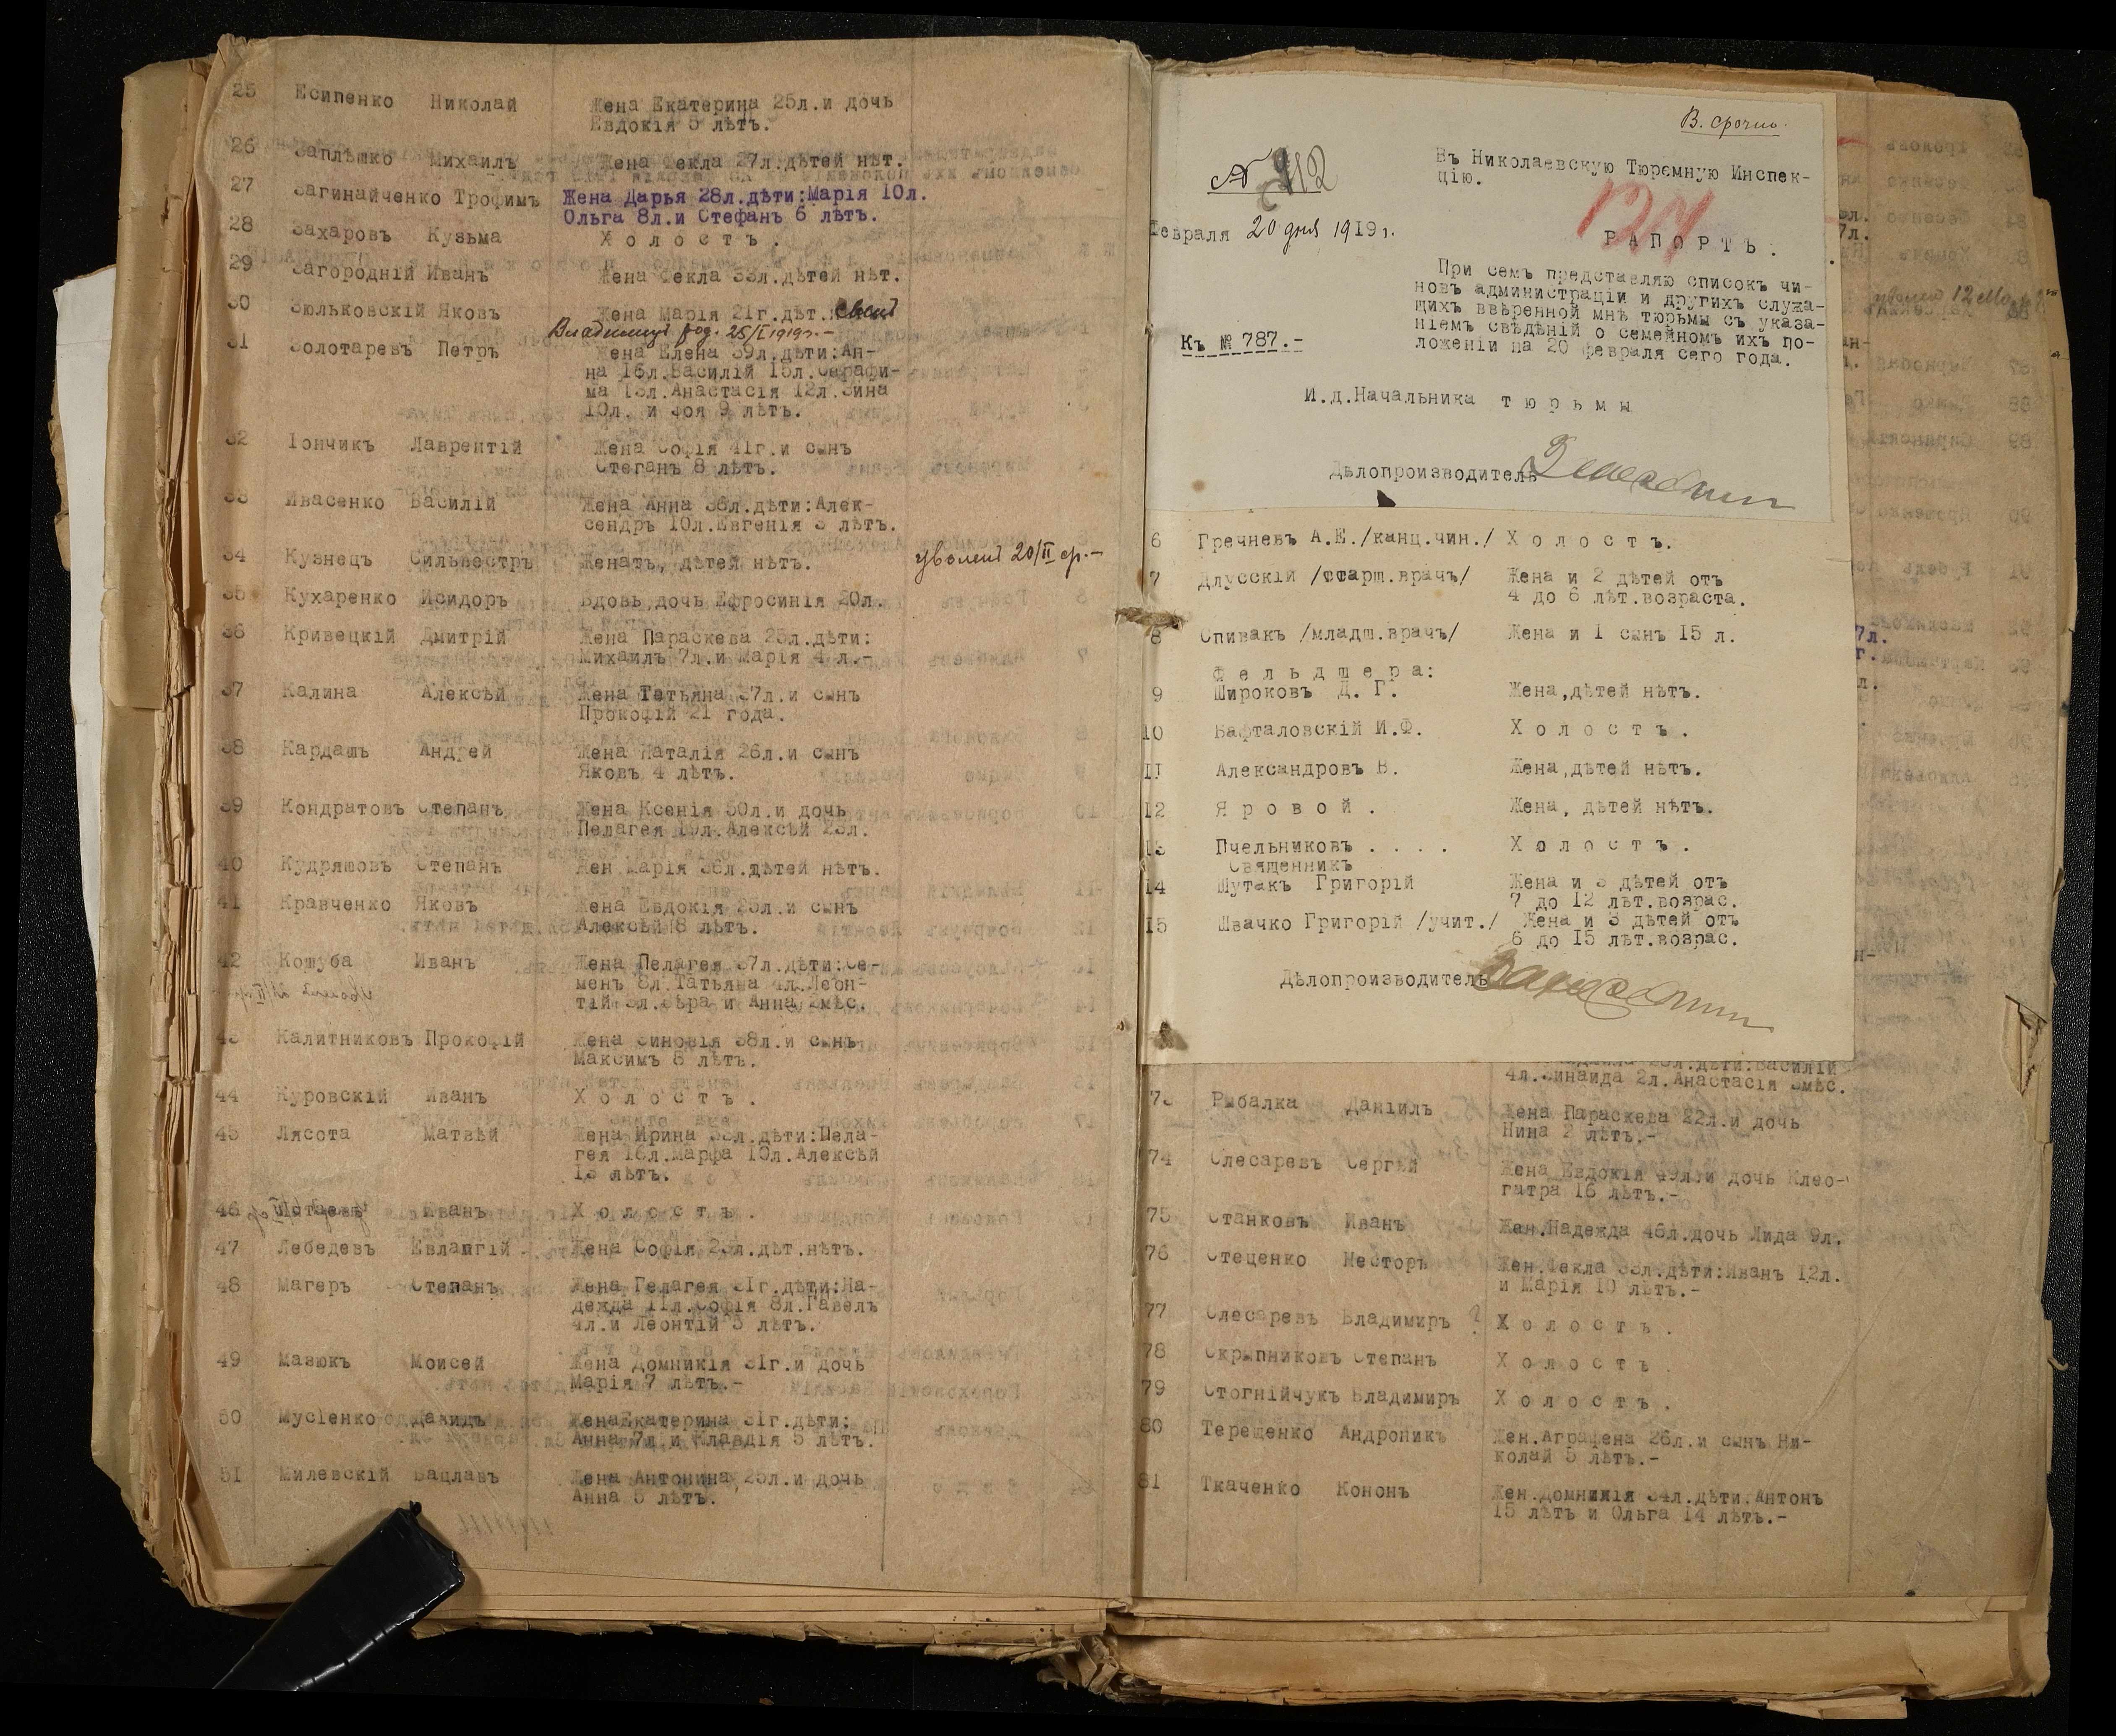 25 Есипенко Николай Жена Екатерина 25л.и дочь
Евдокія 5 лѣтъ.
26 Заплѣшко Михаилъ Жена Фекла 27л.дѣтей нѣт.
27 Загинайченко Трофимъ Жена Дарья 28л.дѣти:Марія 10л.
Ольга 8л.и Стефанъ 6 лѣтъ.
28 Захаровъ Кузьма Х о л о с т ъ .
29 Загородній Иванъ Жена Фекла 33л.дѣтей нѣт.
30 Зюльковскій Яковъ Жена Марія 21г.дѣт.
Владимиръ род. 25/I 1919г.-
31 Золотаревъ Петръ Жена Елена 39л.дѣти:Ан-
на 16л.Василій 15л.Серафи-
ма 13л.Анастасія 12л.Зина
10л. и Зоя 9 лѣтъ.
32 Іончикъ Лаврентій Жена Софія 41г.и сынъ
Степанъ 8 лѣтъ.
33 Ивасенко Василій Жена Анна 36л.дѣти:Алек-
сендръ 10л.Евгенія 3 лѣтъ.
34 Кузнецъ Сильвестръ Женатъ, дѣтей нѣтъ. уволенъ 20/II ср.-
35 Кухаренко Исидоръ Вдовъ,дочь Ефросинія 20л.
36 Кривецкій Дмитрій Жена Параскева 25л.дѣти:
Михаилъ 7л.и Марія 4 л.-
37 Калина Алексѣй Жена Тетьяна 37л.и сынъ
Прокофій 21 года.
38 Кардашъ Андрей Жена Наталія 26л.и сынъ
Яковъ 4 лѣтъ.
39 Кондратовъ Степанъ Жена Ксенія 50л.и дочь
Пелагея Алексѣй
40 Кудряшовъ Степанъ Жен Марія 36л.дѣтей нѣтъ.
41 Кравченко Яковъ Жена Евдокія и сынъ
Алексѣй 8 лѣтъ.
42 Кошуба Иванъ Жена Пелагея 37л.дѣти:Се-
менъ 8л.Татьяна 4л.Леон-
тій 3л.Вѣра и Анна 2мѣс.
43 Калитниковъ Прокофій Жена Зиновія 38л.и сынъ
Максимъ 8 лѣтъ.
44 Куровскій Иванъ Х о л о с т ъ .
45 Лясота Матвѣй Жена Ирина 38л.дѣти:Пела-
гея 16л.Марфа 10л.Алексѣй
13 лѣтъ.
46 Иванъ Х о л о с т ъ .
47 Лебедевъ Евлампій Жена Софія дѣт.нѣтъ.
48 Магеръ Степанъ Жена Пелагея 31г.дѣти:На-
дежда 11л.Софія 8л.Павелъ
4л.и Леонтій 5 лѣтъ.
49 Мазюкъ Моисей Жена Домникія 31г.и дочь
Марія 7 лѣтъ.-
50 Мусіенко Давидъ ЖенаЕкатерина 31г.дѣти:
Анна 7л.и Клавдія 5 лѣтъ.
51 Милевскій Вацлавъ Жена Антонина 25л.и дочь
Анна 5 лѣтъ.
В. срочно.
№ 912
Въ Николаевскую Тюремную Инспек-
цію.
124
Февраля 20 дня 1919 г.
Р А П О Р Т Ъ .
При семъ представляю списокъ чи-
новъ администраціи и другихъ служа-
щихъ ввѣренной мнѣ тюрьмы съ указа-
ніемъ свѣдѣній о семейномъ ихъ по-
ложеніи на 20 февраля сего года.
Къ № 787.-
И.д.Начальника т ю р ь м ы
Дѣлопроизводитель
6 Гречневъ А.Е./канц.чин./ Х о л о с т ъ.
7 Длусскій /старш.врачъ/ Жена и 2 дѣтей отъ
4 до 6 лѣт.возраста.
8 Спивакъ /младш.врачъ/ Жена и 1 сынъ 15 л.
Ф е л ь д ш е р а:
9 Широковъ Д. Г. Жена,дѣтей нѣтъ.
10 Бафталовскій И.Ф. Х о л о с т ъ .
11 Александровъ В. Жена,дѣтей нѣтъ.
12 Я р о в о й . Жена, дѣтей нѣтъ.
13 Пчельниковъ . . . . Х о л о с т ъ .
Священникъ
14 Шутакъ Григорій Жена и 3 дѣтей отъ
7 до 12 лѣт.возрас.
15 Швачко Григорій /учит./ Жена и 3 дѣтей отъ
6 до 15 лѣт.возрас.
Дѣлопроизводитель
дѣти:Василій
4л.Зинаида 2л.Анастасія 3мѣс.
73 Рыбалка Даніилъ Жена Параскева 22л.и дочь
Нина 2 лѣтъ.-
74 Слесаревъ Сергѣй Жена Евдокія 49л.и дочь Клео-
патра 16 лѣтъ.-
75 Станковъ Иванъ Жен.Надежда 46л.дочь Лида 9л.
76 Стеценко Несторъ Жен.Фекла 33л.дѣти:Иванъ 12л.
и Марія 10 лѣтъ.-
77 Слесаревъ Владимиръ ? Х о л о с т ъ .
78 Скрыпниковъ Степанъ Х о л о с т ъ .
79 Стогнійчукъ Владимиръ Х о л о с т ъ .
80 Терещенко Андроникъ Жен.Аграфена 26л.и сынъ Ни-
колай 5 лѣтъ.-
81 Ткаченко Кононъ Жен.Домникія 34л.дѣти.Антонъ
15 лѣтъ и Ольга 14 лѣтъ.-